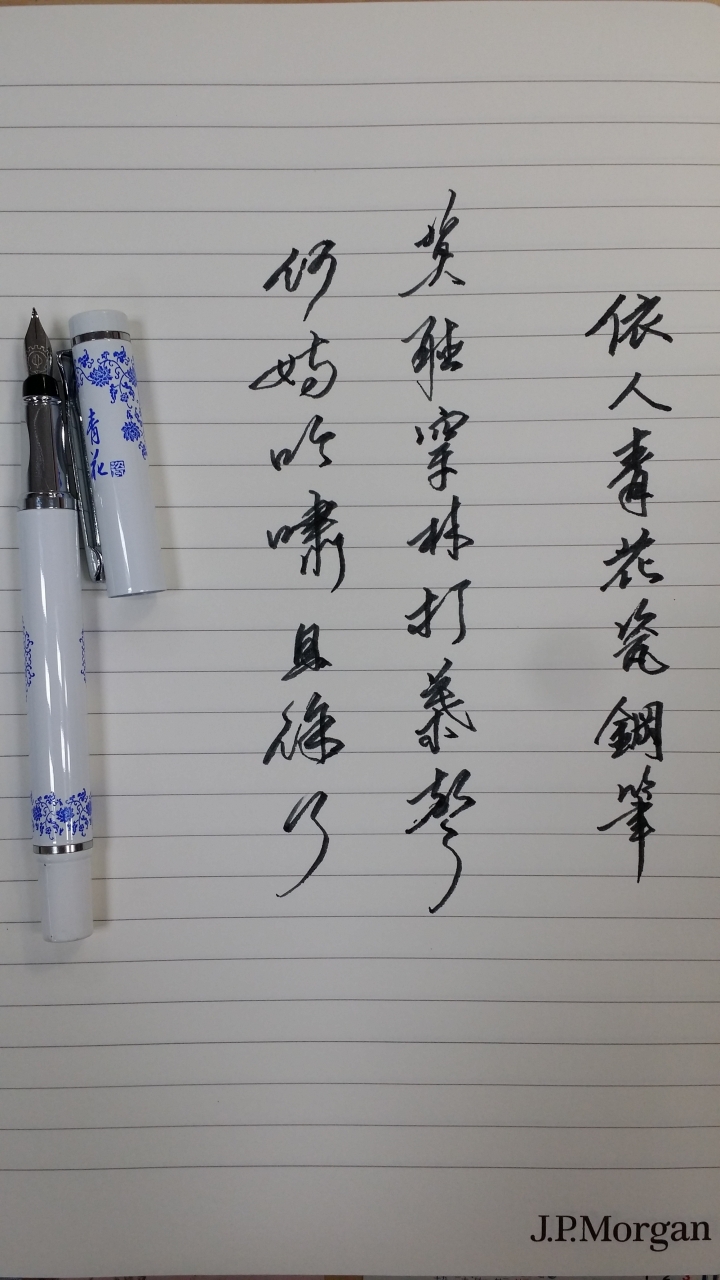 依人青花瓷鋼筆
莫聽穿林打葉聲
何妨吟嘯且徐行
青花
J.P.Morgan